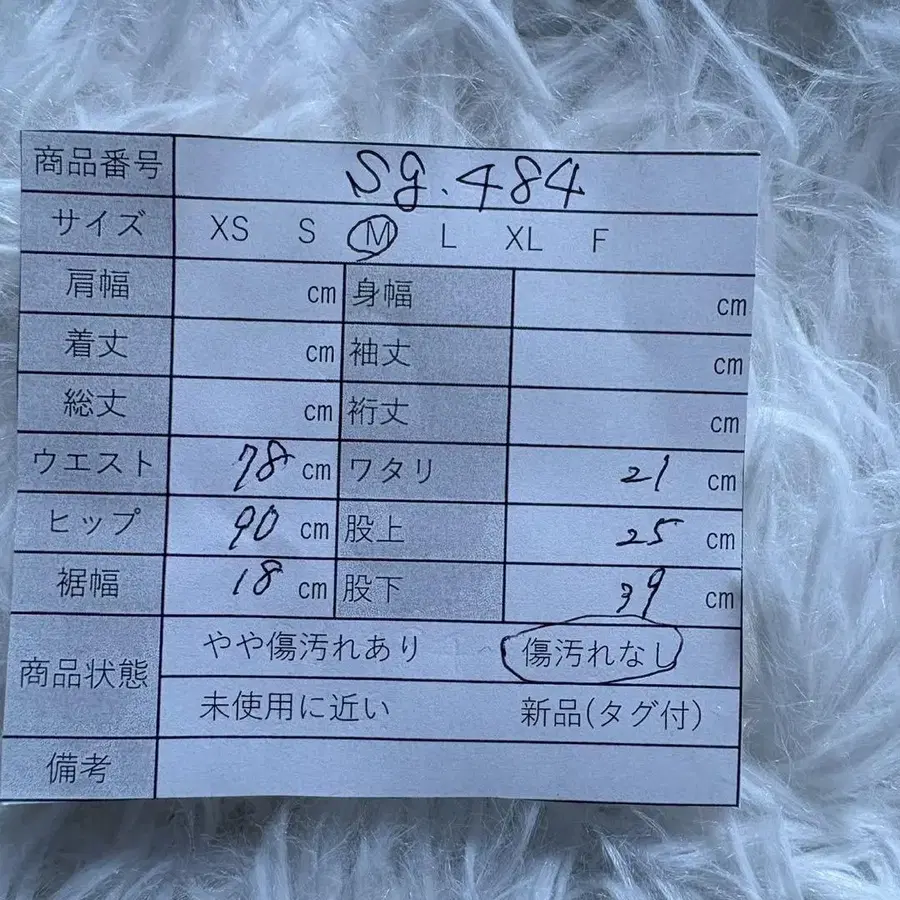 商品番号 Sg.484
サイズ XS S M L XL F
肩幅 cm 身幅 cm
着丈 cm 袖丈 cm
総丈 cm 裄丈 cm
ウエスト 78 cm ワタリ 21 cm
ヒップ 90 cm 股上 25 cm
裾幅 18 cm 股下 39 cm
商品状態 やや傷汚れあり 傷汚れなし
未使用に近い 新品(タグ付)
備考